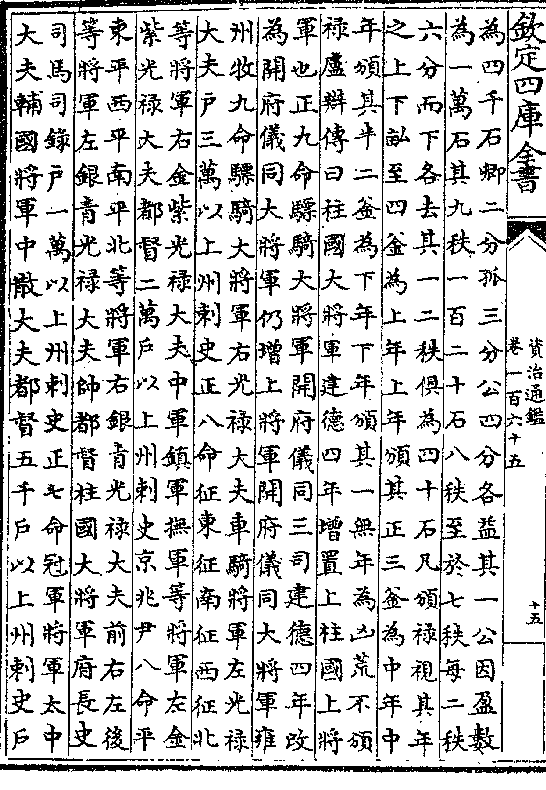 欽定四庫全書
資治通鑑
卷一百六十五
十五
為四千石卿二分孤三分公四分各益其一公因盈數
為一萬石其九秩一百二十石八秩至於七秩每二秩
六分而下各去其一二秩俱為四十石凡頒祿視其年
之上下畝至四釜為上年上年頒其正三釜為中年中
年頒其半二釜為下年下年頒其一無年為凶荒不頒
祿盧辯傳曰柱國大將軍建德四年增置上柱國上將
軍也正九命驃騎大將軍開府儀同三司建德四年改
為開府儀同大將軍仍增上將軍開府儀同大將軍雍
州牧九命驃騎大將軍右光禄大夫車騎將軍左光禄
大夫戶三萬以上州刺史正八命征東征南征西征北
等將軍右金紫光禄大夫中軍鎮軍撫軍等將軍左金
紫光禄大夫都督二萬戶以上州刺史京兆尹八命平
東平西平南平北等將軍右銀青光禄大夫前右左後
等將軍左銀青光禄大夫帥都督柱國大將軍府長史
司馬司錄戶一萬以上州刺史正七命冠軍將軍太中
大夫輔國將軍中散大夫都督五千戶以上州刺史戶